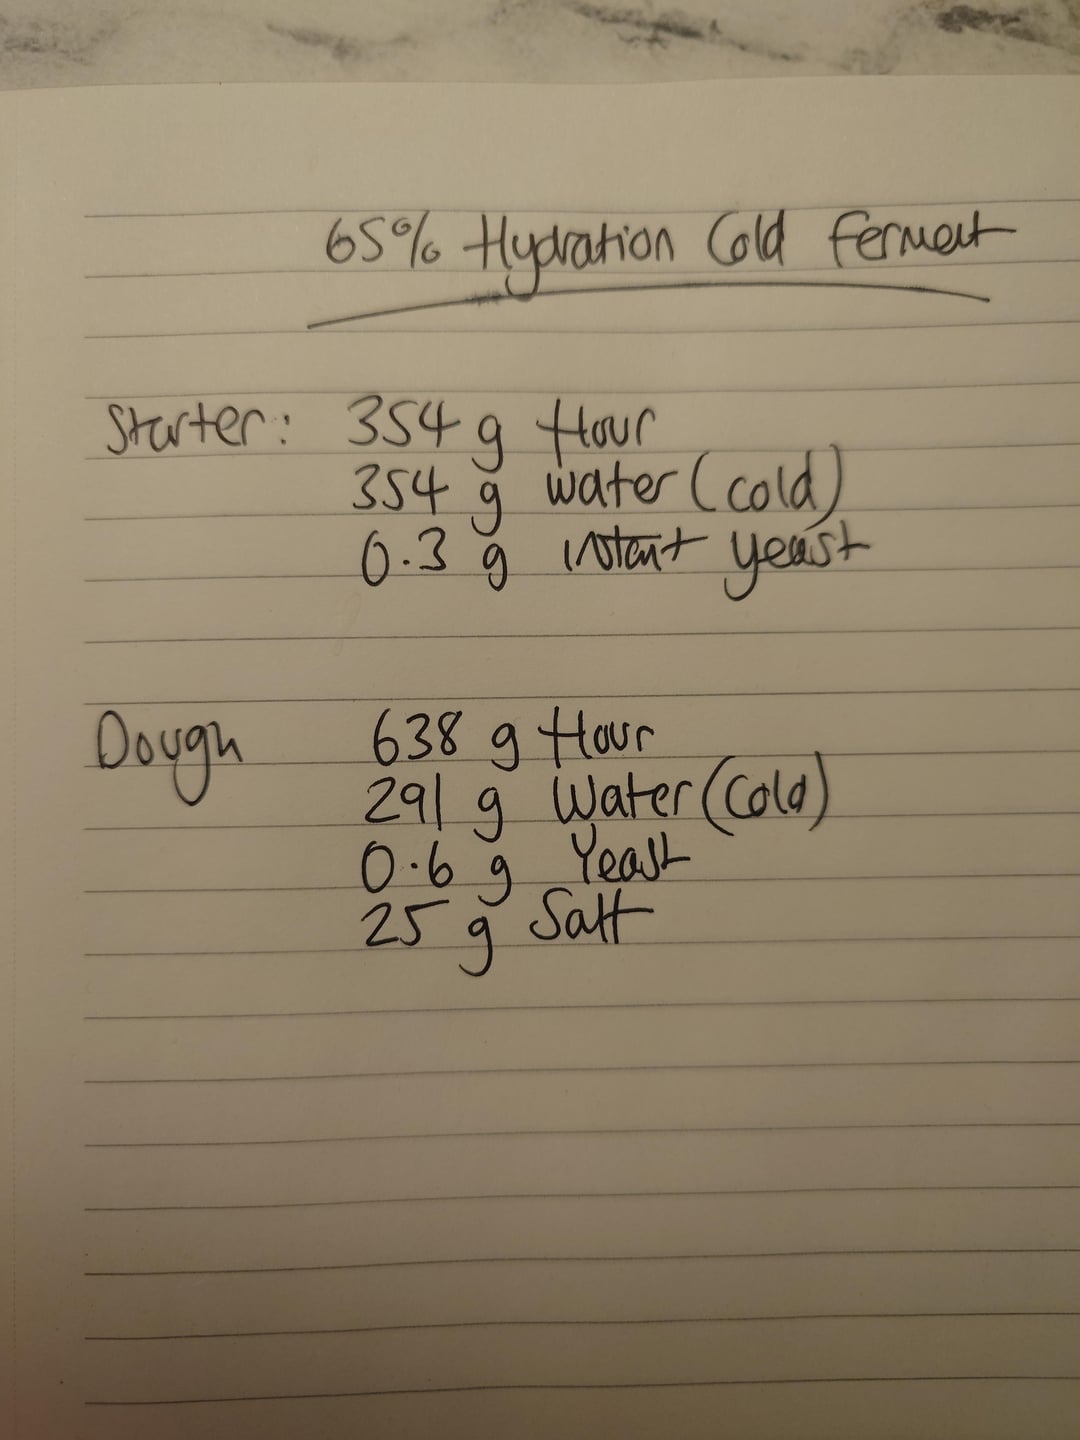 65% Hydration Cold Ferment
Starter: 354 g flour
354 g water (cold)
0.3 g instant yeast
Dough 638 g flour
291 g Water (Cold)
0.6 g Yeast
25 g Salt